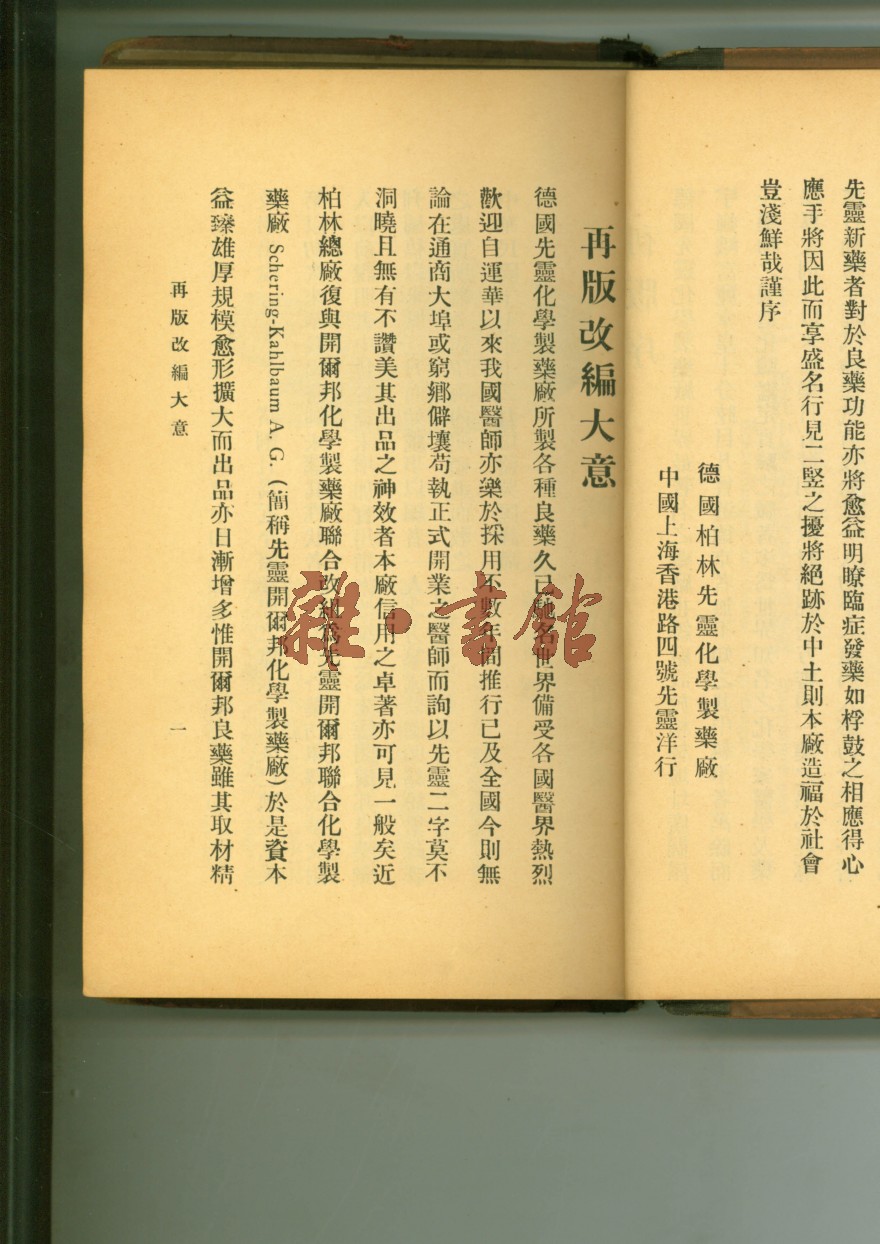 先靈新藥者對於良藥功能亦將愈益明瞭臨症發藥如桴鼓之相應得心
應手將因此而享盛名行見二竪之擾將絕跡於中土則本廠造福於社會
豈淺鮮哉謹序
德國柏林先靈化學製藥廠
中國上海香港路四號先靈洋行
再版改編大意
德國先靈化學製藥廠所製各種良藥久已馳名世界備受各國醫界熱烈
歡迎自運華以來我國醫師亦樂於採用不數年間推行已及全國今則無
論在通商大埠或窮鄉僻壤苟執正式開業之醫師而詢以先靈二字莫不
洞曉且無有不讚美其出品之神效者本廠信用之卓著亦可見一般矣近
柏林總廠復與開爾邦化學製藥廠聯合改組爲先靈開爾邦聯合化學製
藥廠 Schering-Kahlbaum A. G. (簡稱先靈開爾邦化學製藥廠)於是資本
益臻雄厚規模愈形擴大而出品亦日漸增多惟開爾邦良藥雖其取材精
再版改編大意
一
雜·書館